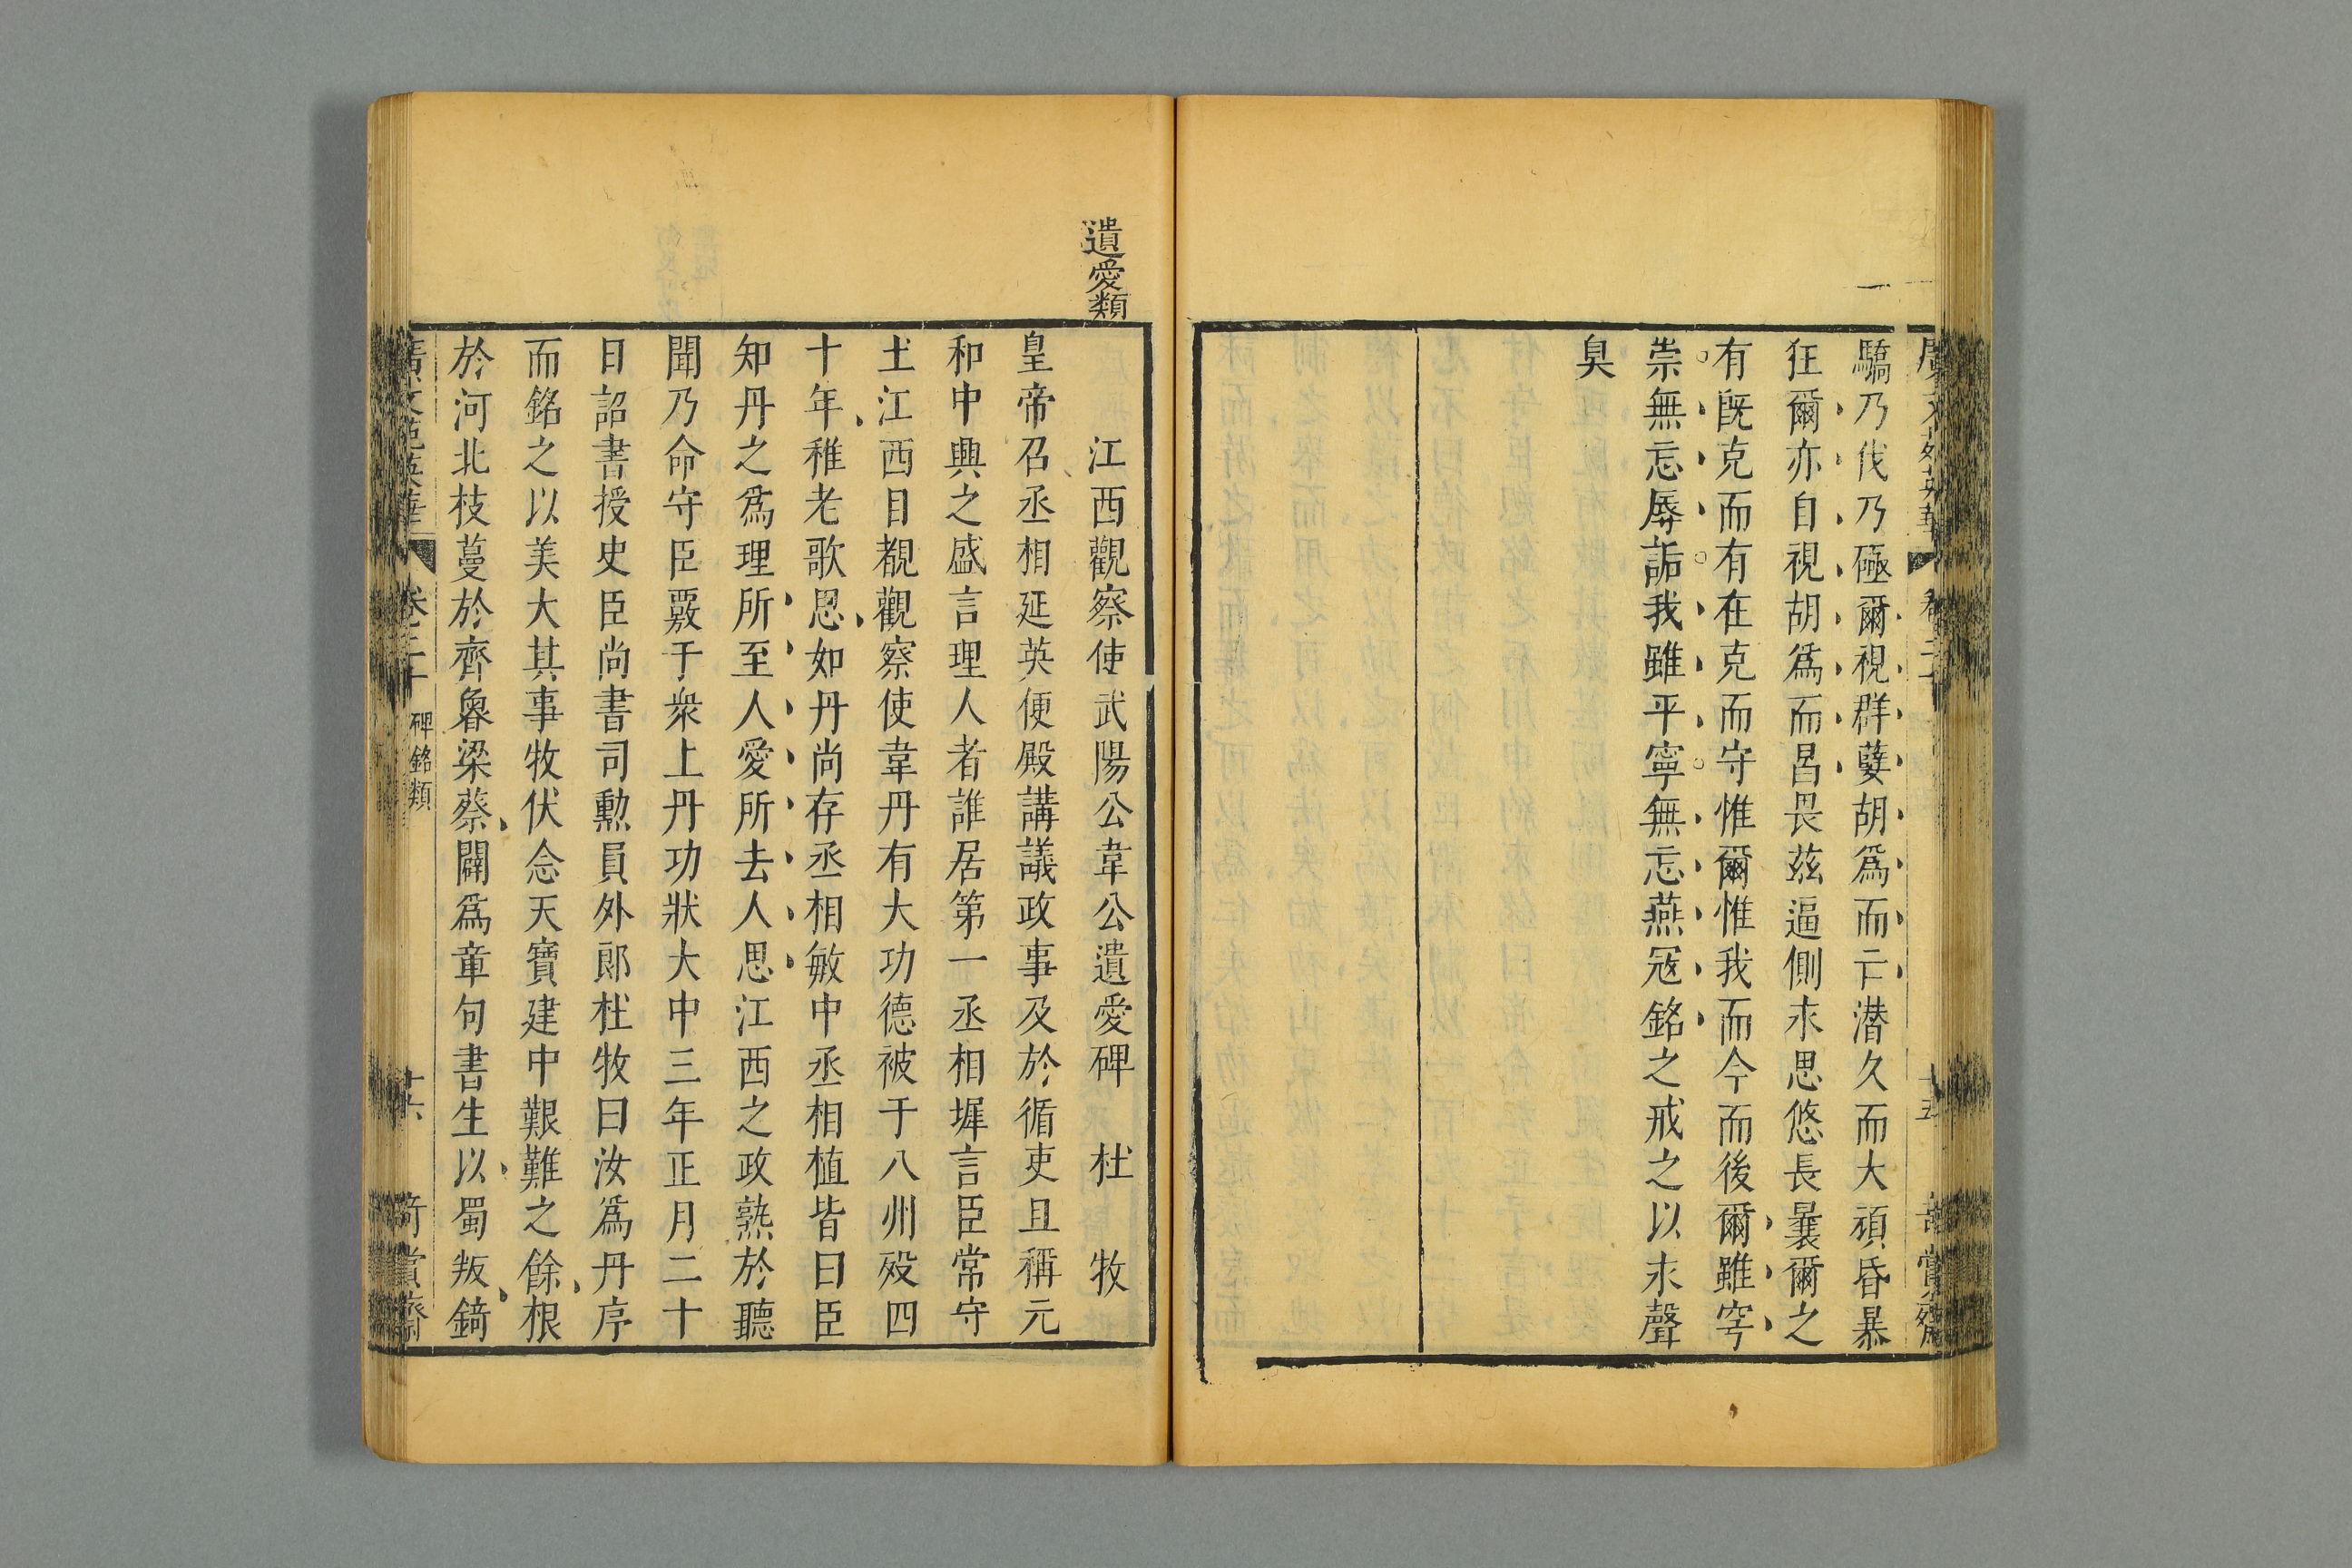 驕乃伐乃殛爾視群孽胡爲而亡潜久而大頑昏暴
狂爾亦自視胡爲而昌畏兹逼側求思悠長曩爾之
有旣克而有在克而守惟爾惟我而今而後爾雖穹
崇無忘辱詬我雖平寧無忘燕冦銘之戒之以求聲
臭
遺愛類
江西觀察使武陽公韋公遺愛碑 杜 牧
皇帝召丞相延英便殿講議政事及於循吏且稱元
和中興之盛言理人者誰居第一丞相墀言臣常守
土江西目覩觀察使韋丹有大功德被于八州殁四
十年稚老歌思如丹尚存丞相敏中丞相植皆曰臣
知丹之爲理所至人愛所去人思江西之政熟於聽
聞乃命守臣覈于衆上丹功狀大中三年正月二十
日詔書授史臣尚書司勳員外郎杜牧曰汝爲丹序
而銘之以美大其事牧伏念天寶建中艱難之餘根
於河北枝蔓於齊魯梁蔡闢爲章句書生以蜀叛錡
廣文苑英華 卷二十 碑銘類 十六 奇賞齋